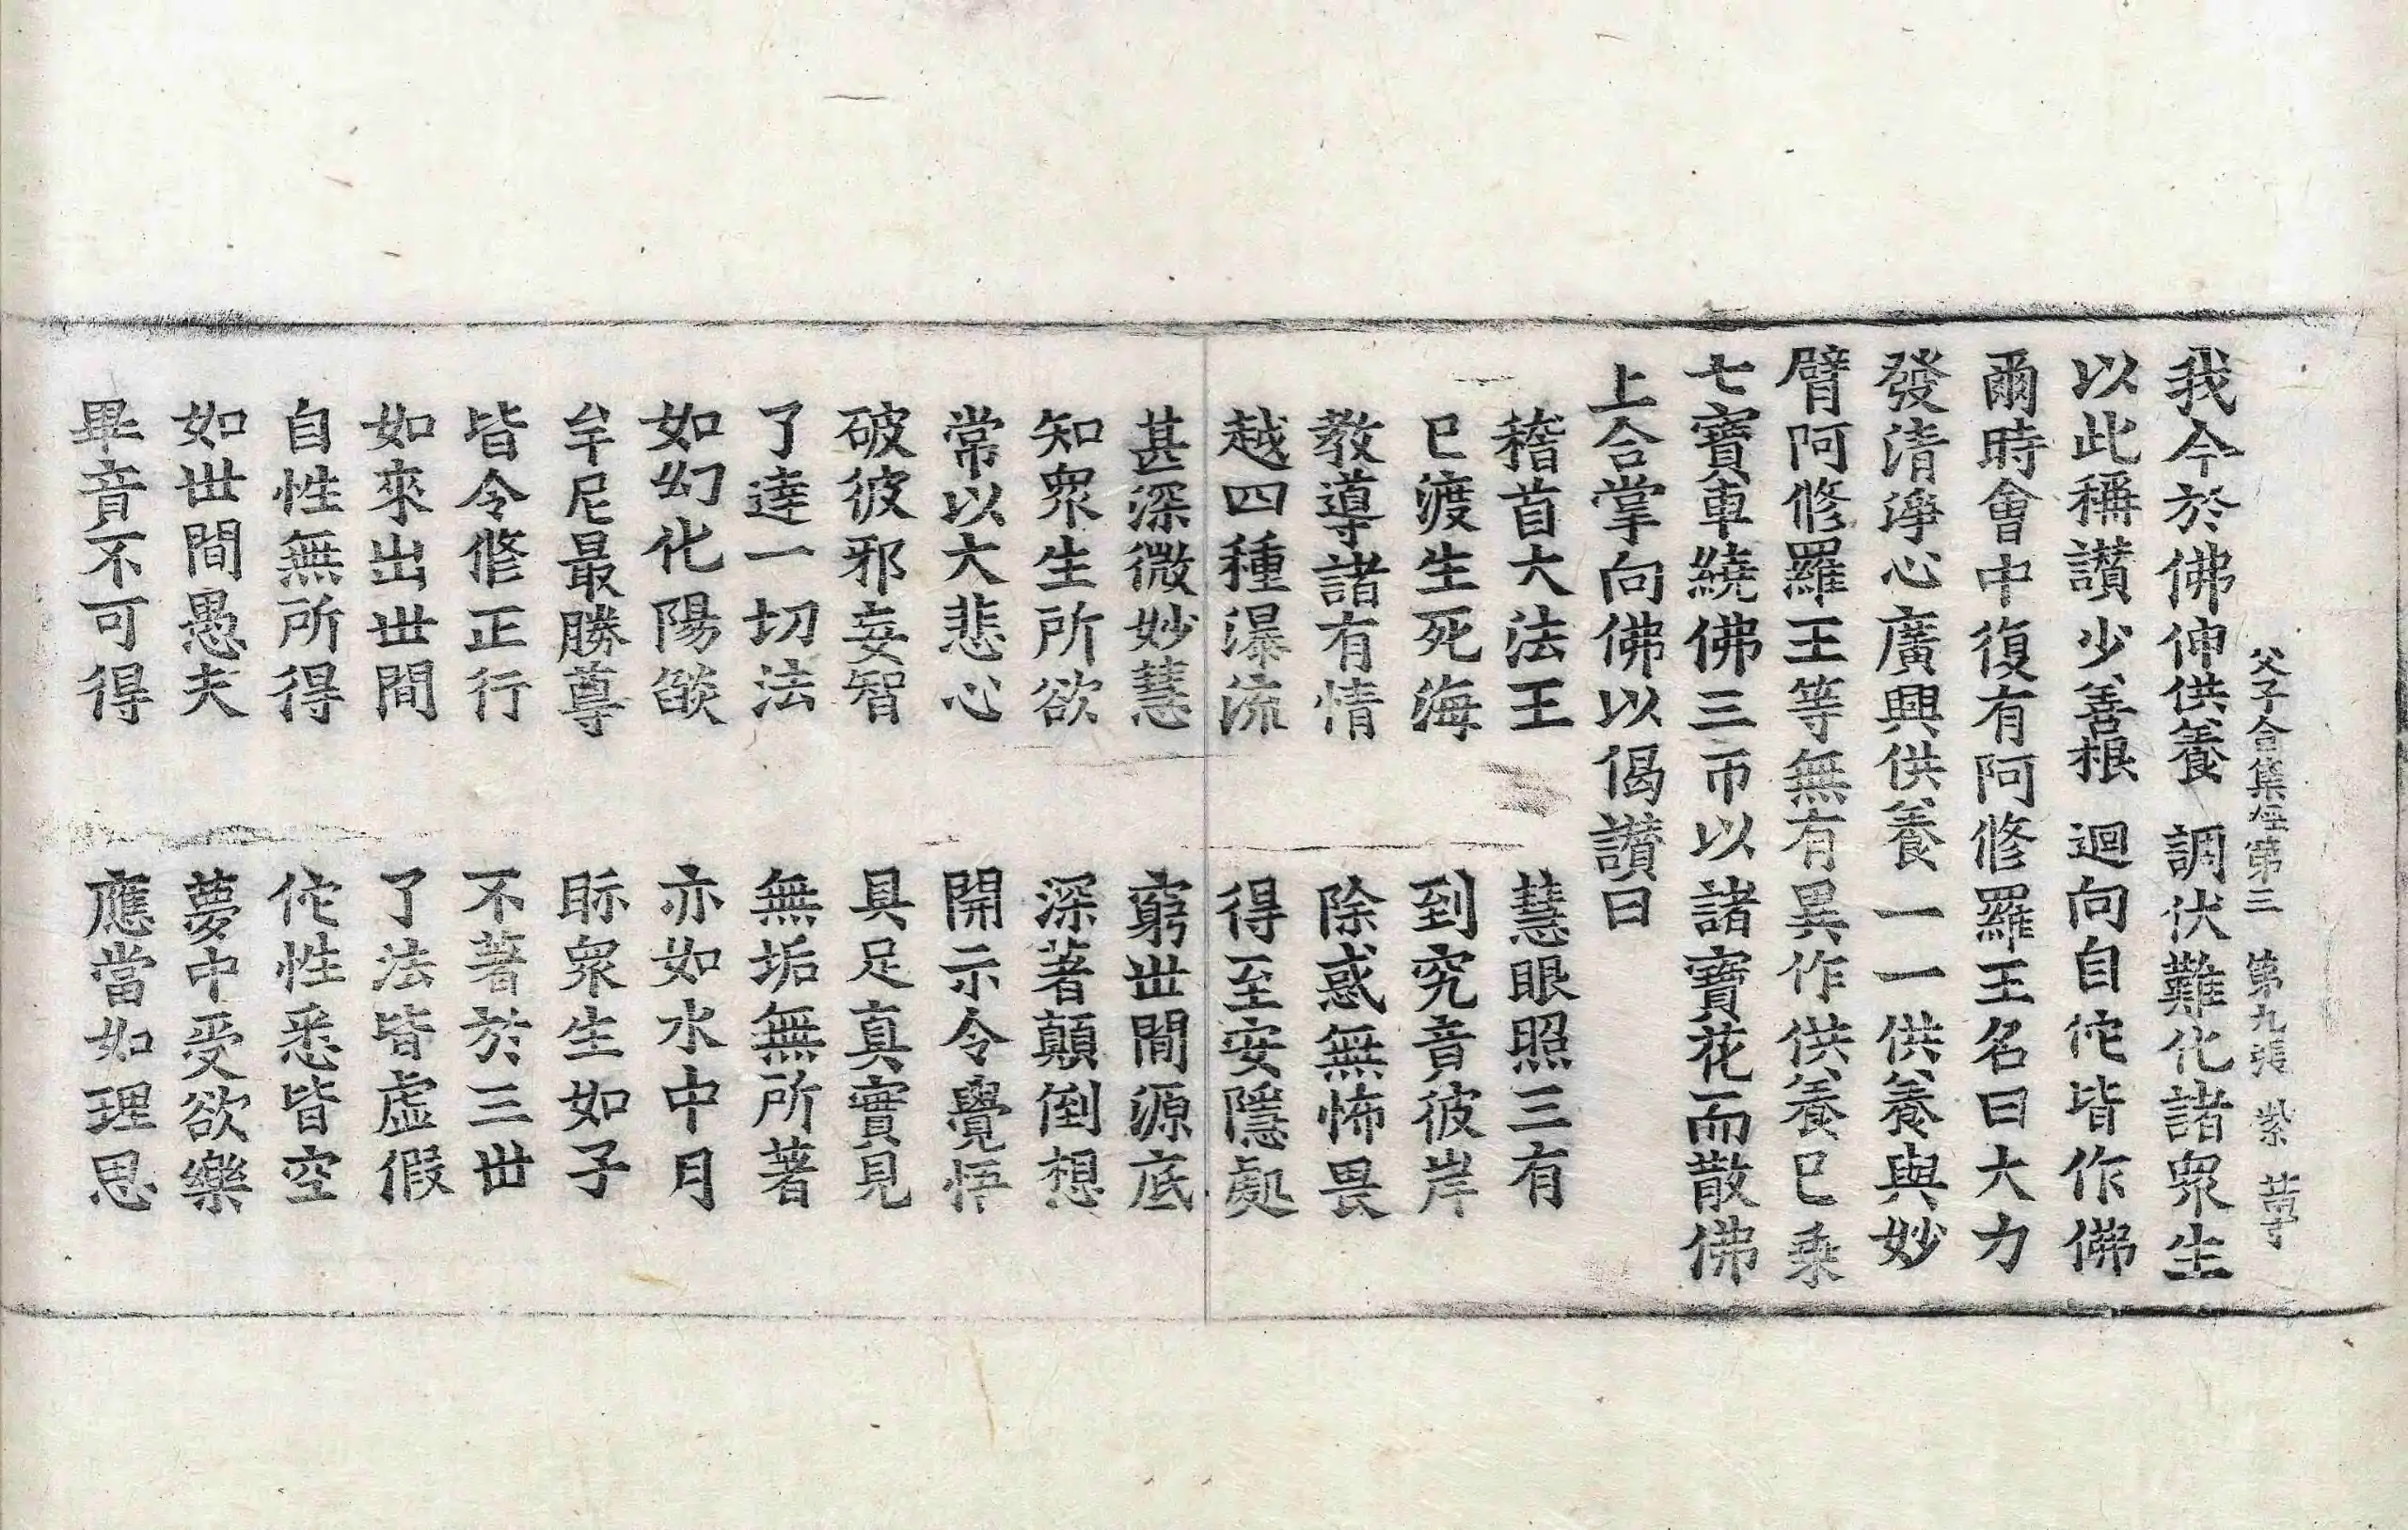 父子合集經第三 第九張 紫 芸亇
我今於佛伸供養 調伏難化諸衆生
以此稱讃少善根 迴向自佗皆作佛
爾時會中復有阿修羅王名曰大力
發清淨心廣興供養一一供養與妙
臂阿修羅王等無有異作供養已乘
七寶車繞佛三帀以諸寶花而散佛
上合掌向佛以偈讃曰
稽首大法王 慧眼照三有
已渡生死海 到究竟彼岸
教導諸有情 除惑無怖畏
越四種瀑流 得至安隱處
甚深微妙慧 窮世間源底
知衆生所欲 深著顛倒想
常以大悲心 開示令覺悟
破彼邪妄智 具足真實見
了達一切法 無垢無所著
如幻化陽燄 亦如水中月
牟尼最勝尊 眎衆生如子
皆令修正行 不著於三世
如來出世間 了法皆虛假
自性無所得 佗性悉皆空
如世間愚夫 夢中受欲樂
畢竟不可得 應當如理思